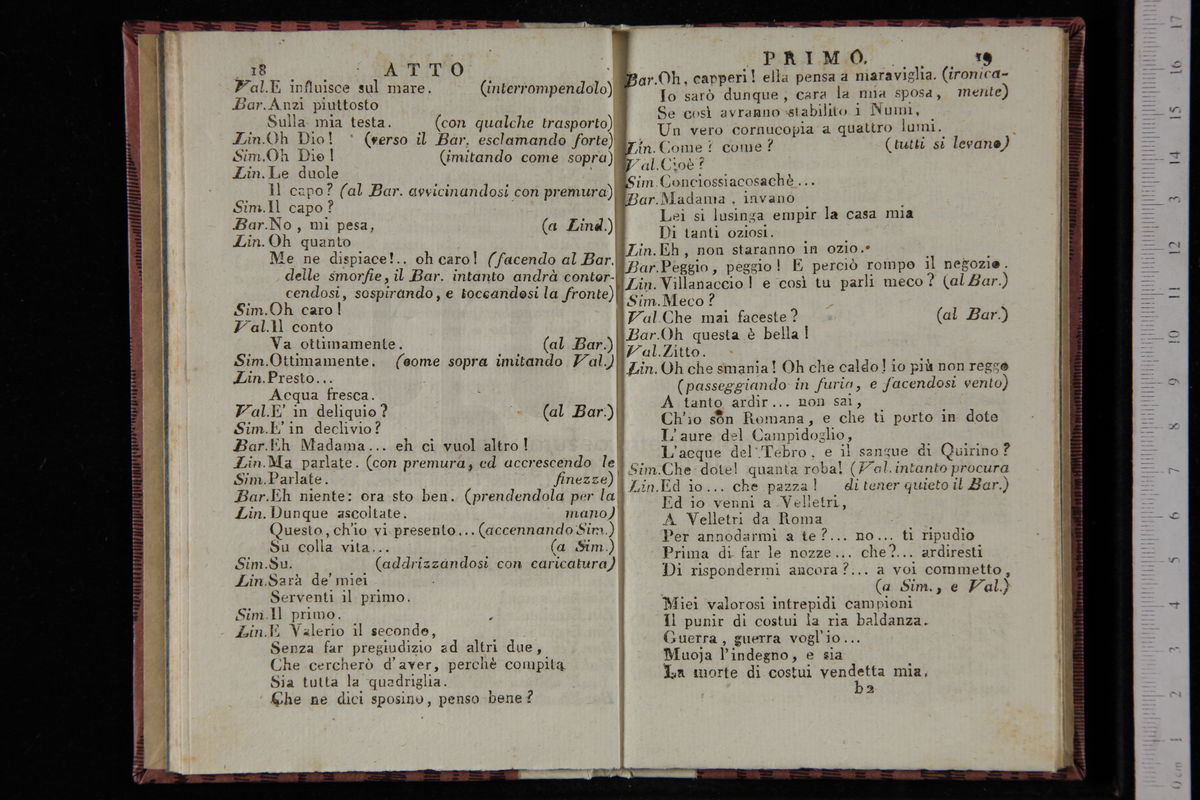 18 ATTO
Val.E influisce sul mare. (interrompendolo)
Bar.Anzi piuttosto
Sulla mia testa. (con qualche trasporto)
Lin.Oh Dio! (verso il Bar. esclamando forte)
Sim.Oh Dio! (imitando come sopra)
Lin.Le duole
Il capo? (al Bar. avvicinandosi con premura)
Sim.Il capo?
Bar.No, mi pesa, (a Lind.)
Lin.Oh quanto
Me ne dispiace!.. oh caro! (facendo al Bar.
delle smorfie, il Bar. intanto andrà contor-
cendosi, sospirando, e toccandosi la fronte)
Sim.Oh caro!
Val.Il conto
Va ottimamente. (al Bar.)
Sim.Ottimamente. (come sopra imitando Val.)
Lin.Presto...
Acqua fresca.
Val.E' in deliquio? (al Bar.)
Sim.E' in declivio?
Bar.Eh Madama... eh ci vuol altro!
Lin.Ma parlate. (con premura, ed accrescendo le
Sim.Parlate. finezze)
Bar.Eh niente: ora sto ben. (prendendola per la
Lin.Dunque ascoltate. mano)
Questo, ch'io vi presento... (accennando Sim.)
Su colla vita... (a Sim.)
Sim.Su. (addrizzandosi con caricatura)
Lin.Sarà de' miei
Serventi il primo.
Sim.Il primo.
Lin.E Valerio il secondo,
Senza far pregiudizio ad altri due,
Che cercherò d'aver, perchè compita
Sia tutta la quadriglia.
Che ne dici sposino, penso bene?
PRIMO. 19
Bar.Oh, capperi! ella pensa a maraviglia. (ironica-
Io sarò dunque, cara la mia sposa, mente)
Se così avranno stabilito i Numi,
Un vero cornucopia a quattro lumi.
Lin.Come? come? (tutti si levano)
Val.Cioè?
Sim.Conciossiacosachè...
Bar.Madama, invano
Lei si lusinga empir la casa mia
Di tanti oziosi.
Lin.Eh, non staranno in ozio.
Bar.Peggio, peggio! E perciò rompo il negozio.
Lin.Villanaccio! e così tu parli meco? (al Bar.)
Sim.Meco?
Val.Che mai faceste? (al Bar.)
Bar.Oh questa è bella!
Val.Zitto.
Lin.Oh che smania! Oh che caldo! io più non reggo
(passeggiando in furia, e facendosi vento)
A tanto ardir... non sai,
Ch'io son Romana, e che ti porto in dote
L'aure del Campidoglio,
L'acque del Tebro, e il sangue di Quirino?
Sim.Che dote! quanta roba! (Val. intanto procura
Lin.Ed io... che pazza! di tener quieto il Bar.)
Ed io venni a Velletri,
A Velletri da Roma
Per annodarmi a te?... no... ti ripudio
Prima di far le nozze... che?... ardiresti
Di rispondermi ancora?... a voi commetto,
(a Sim., e Val.)
Miei valorosi intrepidi campioni
Il punir di costui la ria baldanza.
Guerra, guerra vogl'io...
Muoja l'indegno, e sia
La morte di costui vendetta mia,
b2
0 cm 1 2 3 4 5 6 7 8 9 10 11 12 13 14 15 16 17